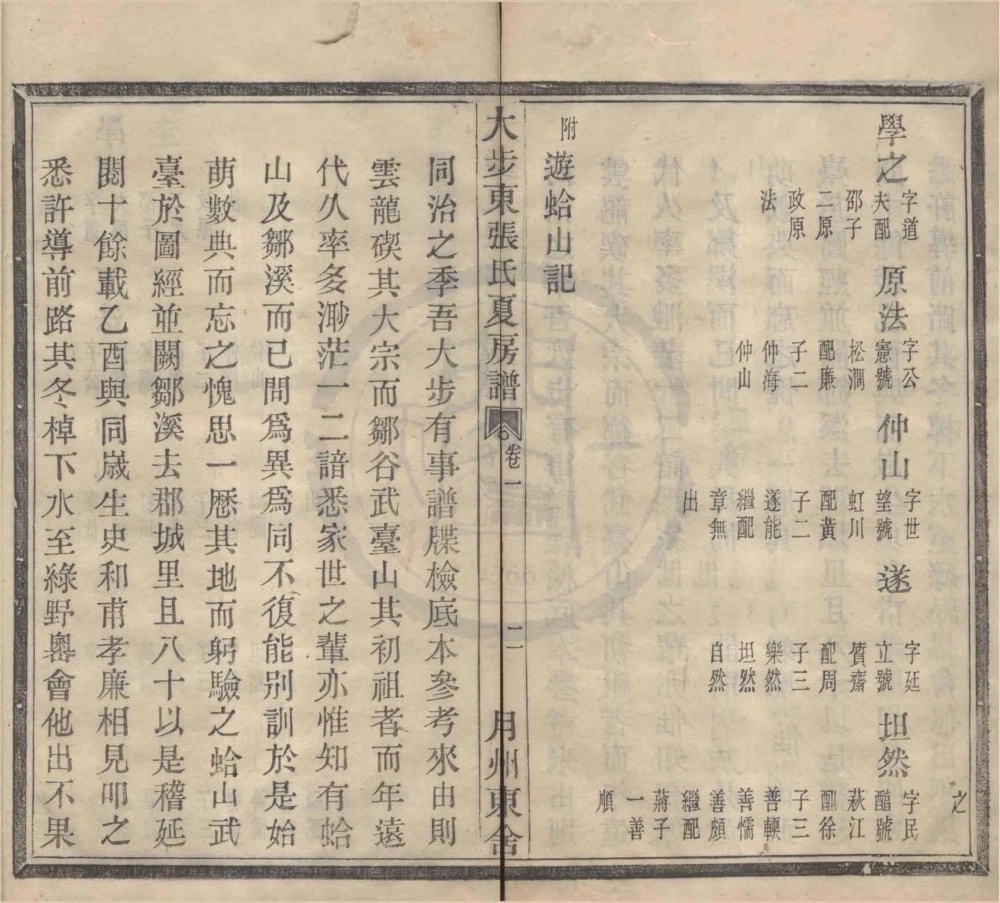 學之 字道夫配邵子二原政原法
原法 字公憲號松澗配廉子二仲海仲山
仲山 字世望號虹川配黃子二遂能繼配章無出
遂 字廷立號質齋配周子三樂然坦然自然
坦然 字民醋號萩江配徐子三善輭善懦善頗繼配蔣子一善順
之
附遊蛤山記
大步東張氏夏房譜 卷一 二 月州東舍
同治之季吾大步有事譜牒檢底本參考來由則
雲龍碶其大宗而鄒谷武臺山其初祖者而年遠
代久率多渺茫一二諳悉家世之輩亦惟知有蛤
山及鄒溪而已間為異為同不復能別訓於是始
萌數典而忘之愧思一歷其地而躬驗之蛤山武
臺於圖經並闕鄒溪去郡城里且八十以是稽延
閱十餘載乙酉與同歲生史和甫孝廉相見叩之
悉許導前路其冬棹下水至綠野嶴會他出不果